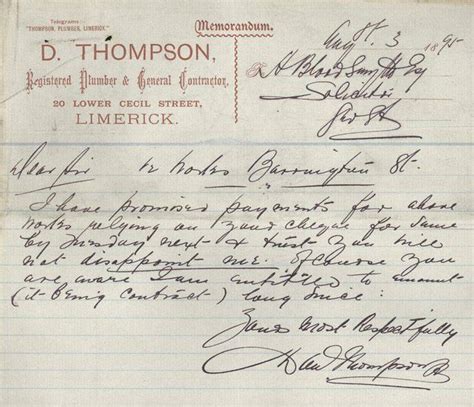 Telegrams:
"THOMPSON, PLUMBER, LIMERICK."
Memorandum.
D. THOMPSON,
Registered Plumber & General Contractor,
20 LOWER CECIL STREET,
LIMERICK.
Augst 3 1895
H Blood Smyth Esq
Solicitor
Geo St
Dear Sir re Works Barrington St.
I have promised payments for above
works relying on your cheque for same
by Tuesday next & trust you will
not disappoint me. Of course you
are aware I am entitled to amount
(it being contract) long since:
Yours most Respectfully
Danl Thompson